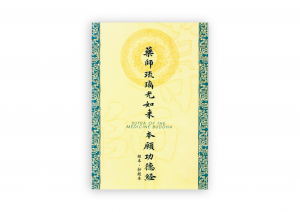 藥師琉璃光如來本願功德經
SUTRA OF THE
MEDICINE BUDDHA